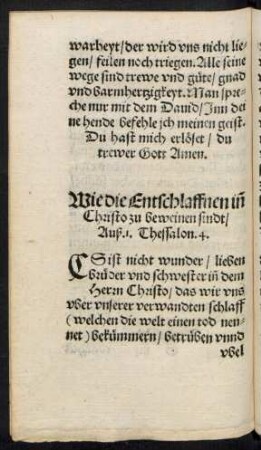 warheyt/ der wird vns nicht lie-
gen/ feilen noch triegen. Alle seine
wege sind trewe vnd güte/ gnad
vnd barmhertzigkeyt. Man spre-
che nur mit dem Dauid/ Jnn dei
ne hende befehle jch meinen geist.
Du hast mich erlöset/ du
trewer Gott Amen.
Wie die Entschlaffnen iñ
Christo zu beweinen sindt/
Auß .1. Thessalon. 4.
ES ist nicht wunder/ lieben
brüder vnd schwester iñ dem
Herrn Christo/ das wir vns
vber vnserer verwandten schlaff
(welchen die welt einen tod nen-
net) bekümmern/ betrüben vnnd
vbel